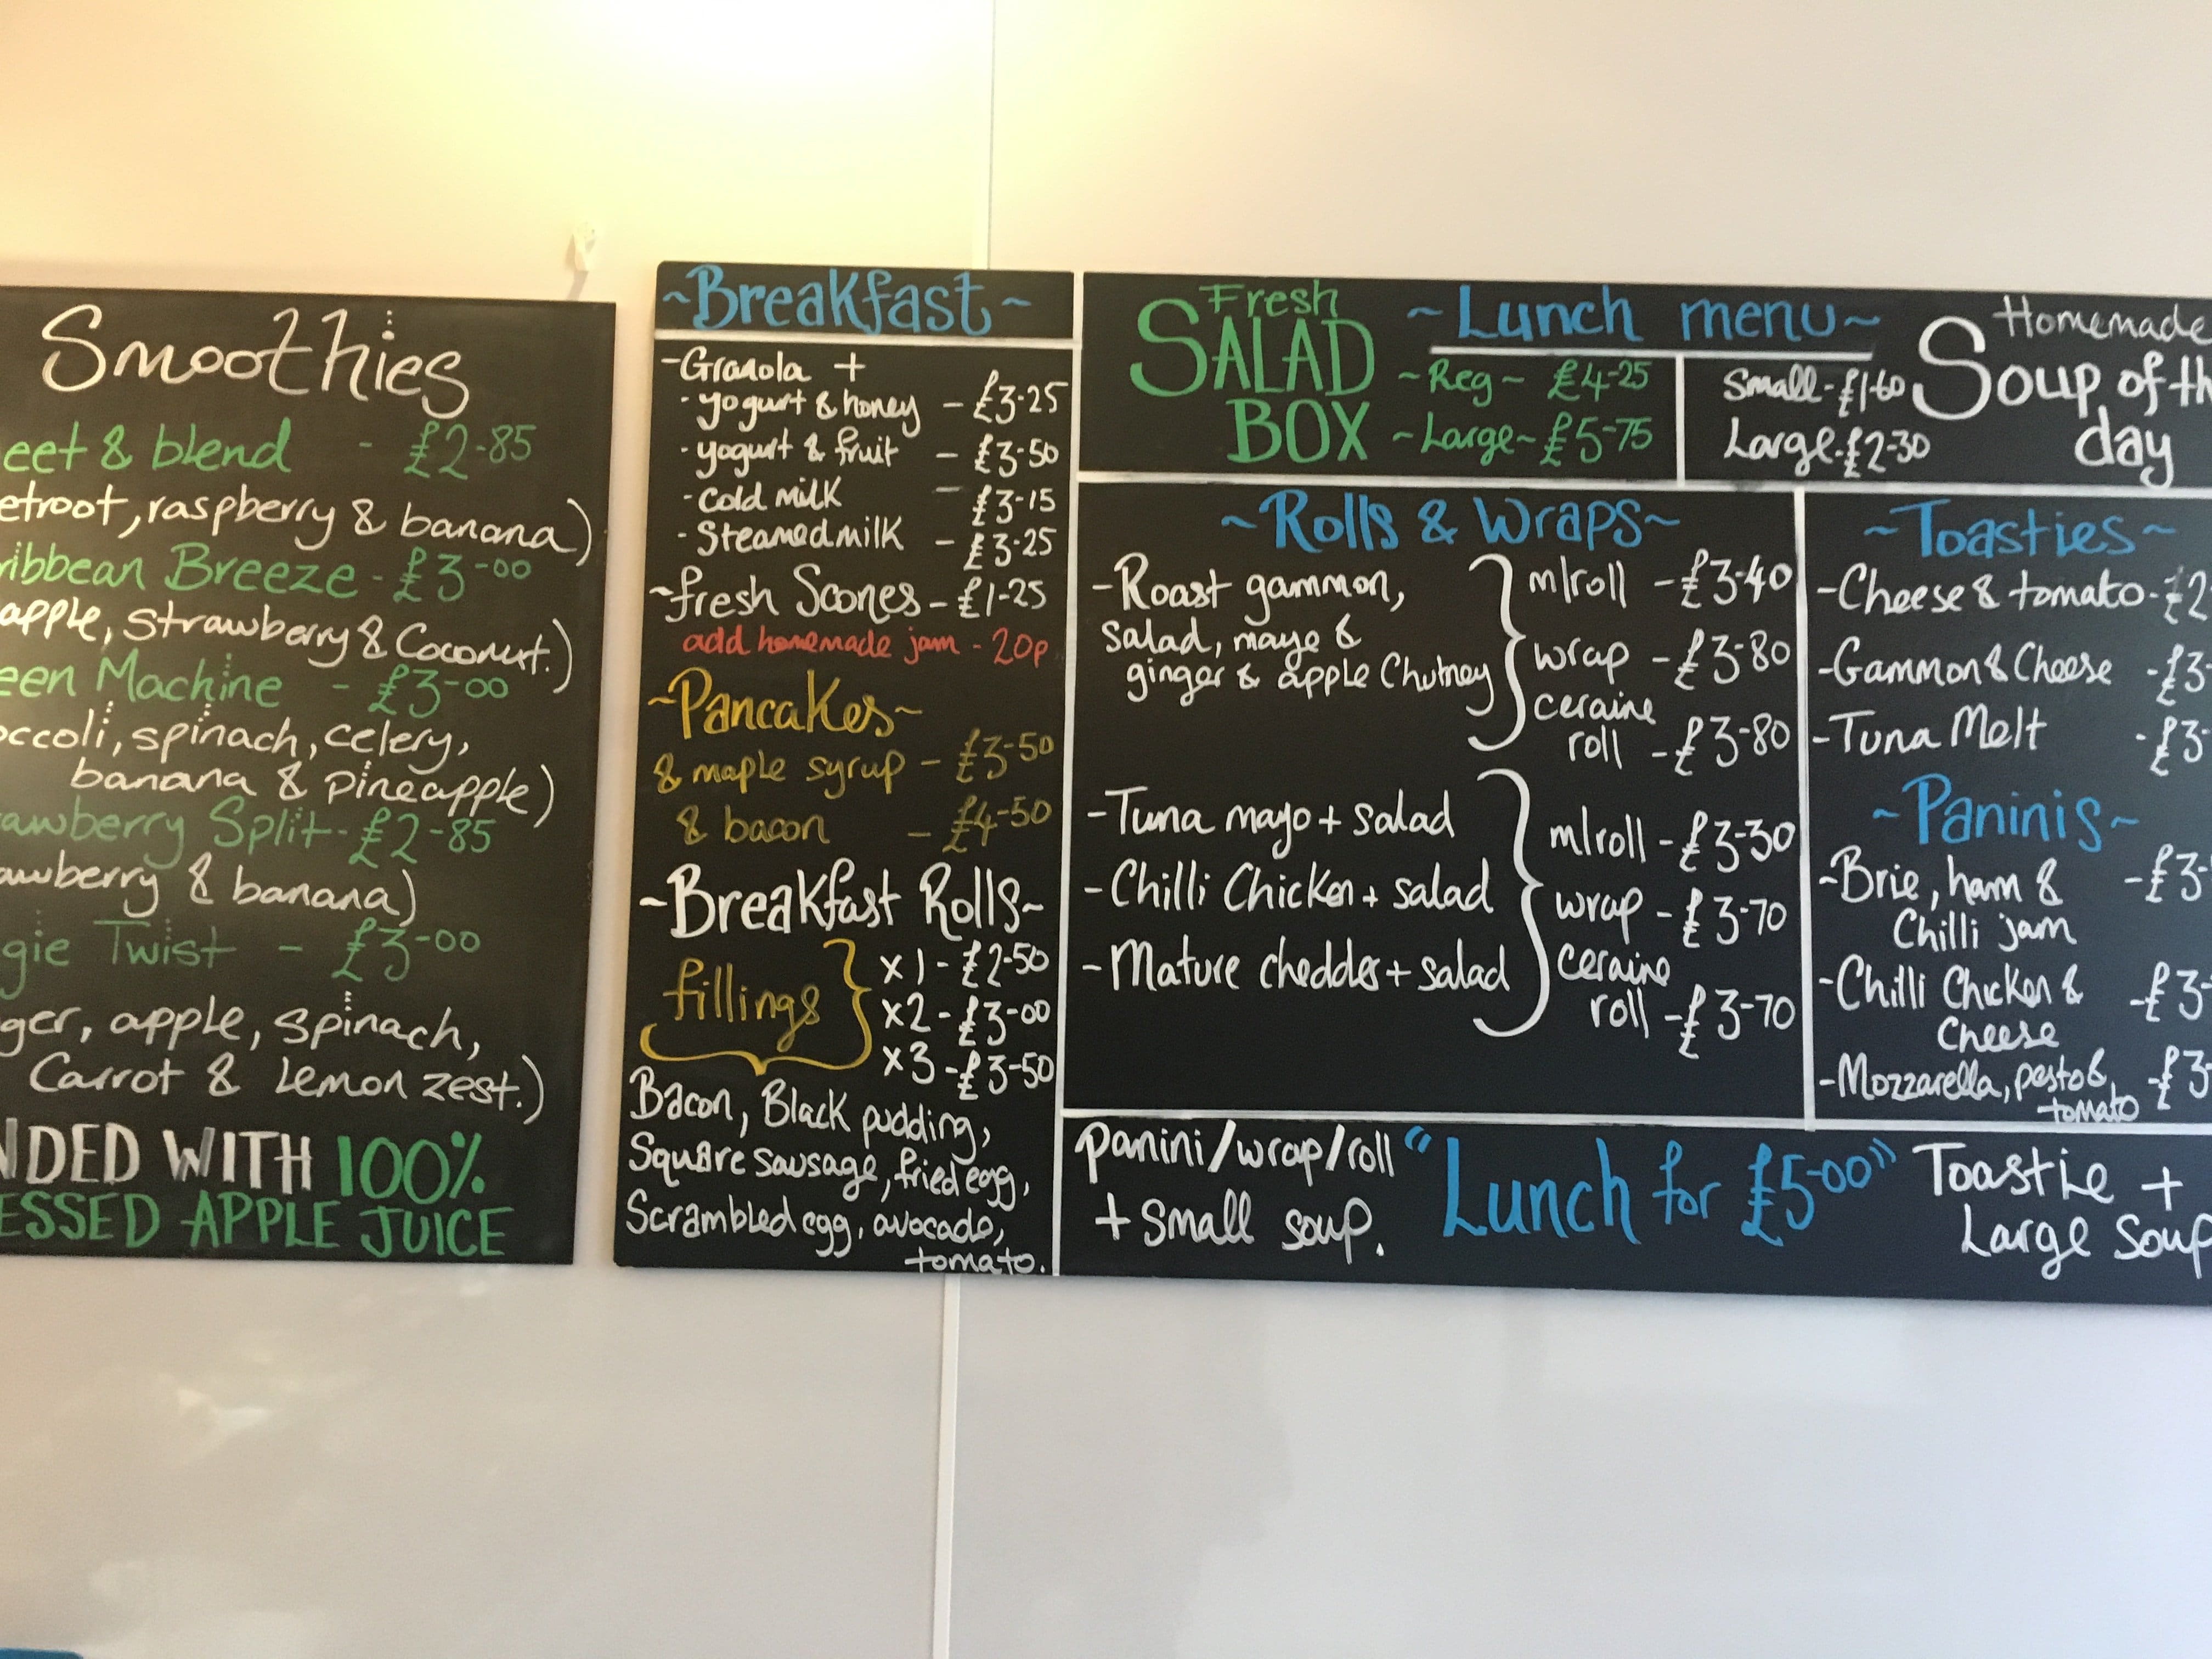 Smoothies
eet & blend - £2-85
etroot, raspberry & banana)
ribbean Breeze - £3-00
apple, strawberry & Coconut.)
een Machine - £3-00
occoli, spinach, celery,
banana & pineapple)
awberry Split - £2-85
awberry & banana)
gie Twist - £3-00
ger, apple, spinach,
Carrot & Lemon zest.)
NDED WITH 100%
ESSED APPLE JUICE
~Breakfast~
-Granola +
- yogurt & honey - £3-25
- yogurt & fruit - £3-50
- cold milk - £3-15
- Steamed milk - £3-25
~fresh Scones - £1-25
add homemade jam - 20p
~Pancakes~
& maple syrup - £3-50
& bacon - £4-50
~Breakfast Rolls~
fillings
x 1 - £2-50
x2 - £3-00
x3 - £3-50
Bacon, Black pudding,
Square sausage, fried egg,
Scrambled egg, avocado,
tomato.
Fresh
SALAD
BOX
~Lunch menu~
~Reg~ £4-25
~Large~ £5-75
Small - £1-60
Large - £2-30
Homemade
Soup of th
day
~Rolls & Wraps~
-Roast gammon,
salad, mayo &
ginger & apple Chutney
m/roll - £3-40
wrap - £3-80
ceraine
roll - £3-80
-Tuna mayo + salad
-Chilli Chicken + salad
-Mature cheddar + salad
m/roll - £3-30
wrap - £3-70
ceraine
roll - £3-70
~Toasties~
-Cheese & tomato - £2
-Gammon & Cheese - £3-
-Tuna Melt - £3-
~Paninis~
-Brie, ham & - £3-
Chilli jam
-Chilli Chicken & - £3-
Cheese
-Mozzarella, pesto & - £3-
tomato
panini/wrap/roll
+ small soup.
"Lunch for £5-00"
Toastie +
Large soup